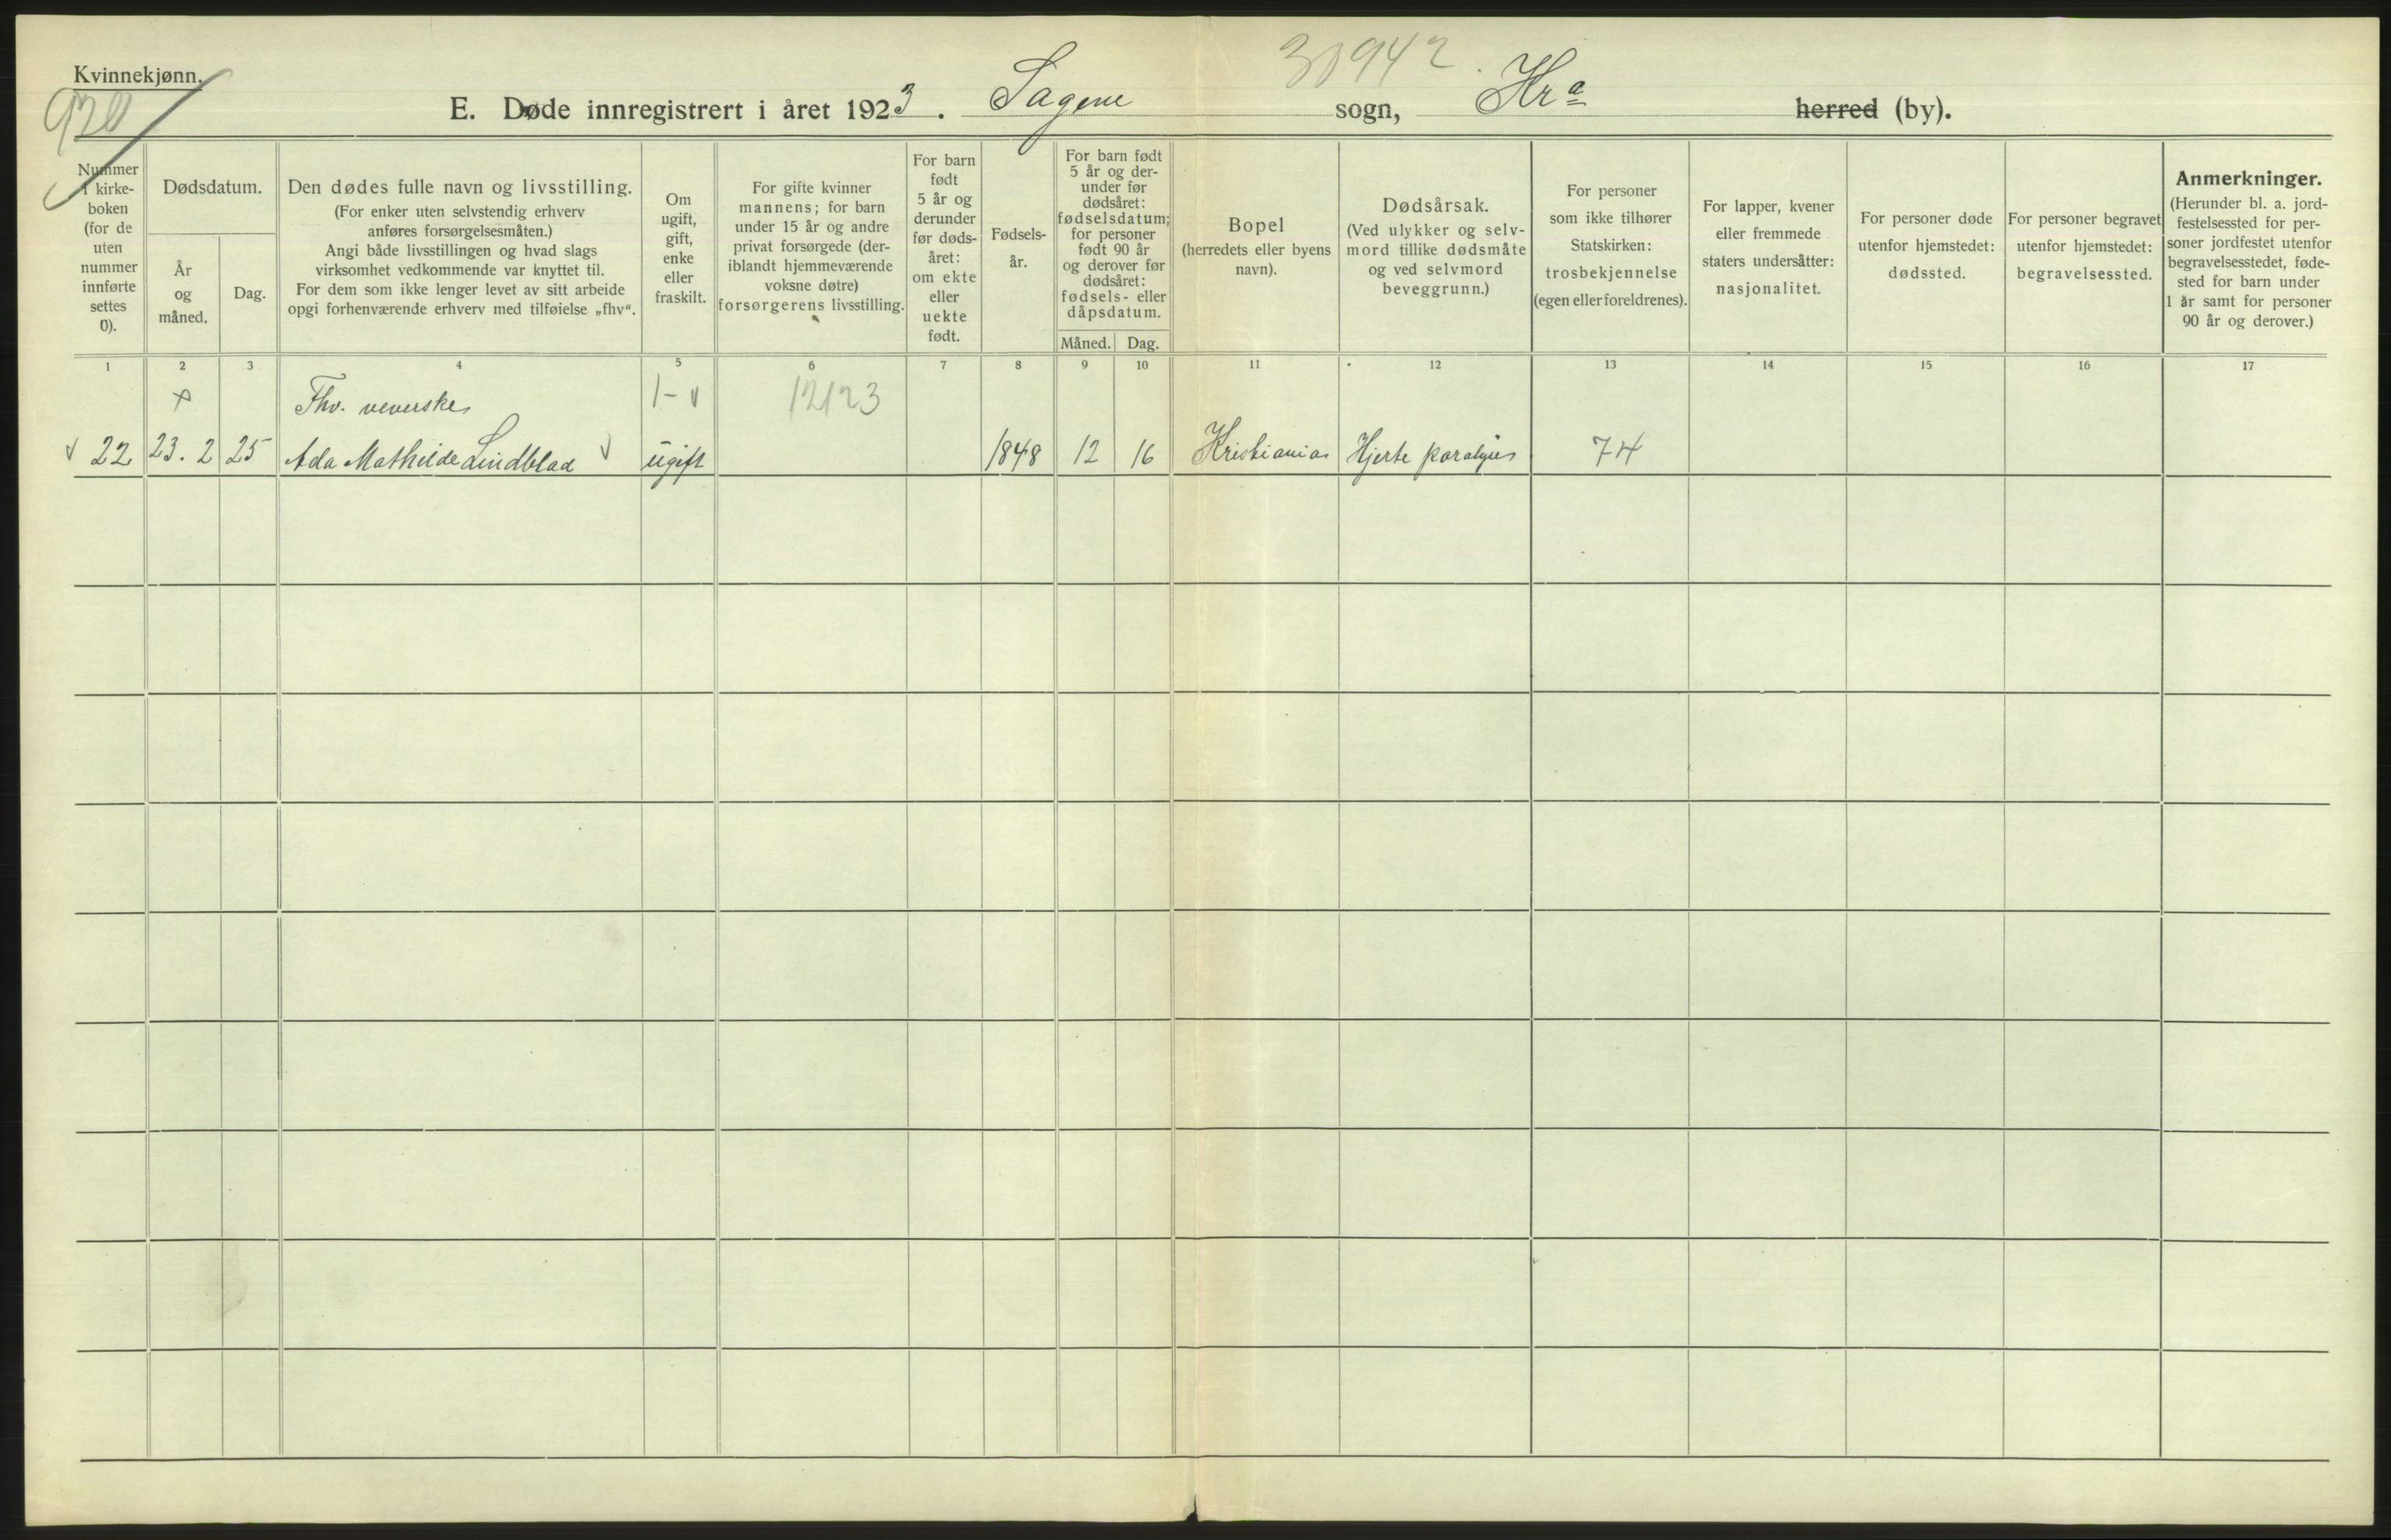 Kvinnekjønn.
930
30942.
E. Døde innregistrert i året 1923. Sagene sogn, Kra herred (by).
Nummer
i kirke-
boken
(for de
uten
nummer
innførte
settes
0).
Dødsdatum.
År
og
måned.
Dag.
Den dødes fulle navn og livsstilling.
(For enker uten selvstendig erhverv
anføres forsørgelsesmåten.)
Angi både livsstillingen og hvad slags
virksomhet vedkommende var knyttet til.
For dem som ikke lenger levet av sitt arbeide
opgi forhenværende erhverv med tilføielse „fhv“.
Om
ugift,
gift,
enke
eller
fraskilt.
For gifte kvinner
mannens; for barn
under 15 år og andre
privat forsørgede (der-
iblandt hjemmeværende
voksne døtre)
forsørgerens livsstilling.
For barn
født
5 år og
derunder
før døds-
året:
om ekte
eller
uekte
født.
Fødsels-
år.
For barn født
5 år og der-
under før
dødsåret:
fødselsdatum;
for personer
født 90 år
og derover før
dødsåret:
fødsels- eller
dåpsdatum.
Måned. Dag.
Bopel
(herredets eller byens
navn).
Dødsårsak.
(Ved ulykker og selv-
mord tillike dødsmåte
og ved selvmord
beveggrunn.)
For personer
som ikke tilhører
Statskirken:
trosbekjennelse
(egen eller foreldrenes).
For lapper, kvener
eller fremmede
staters undersåtter:
nasjonalitet.
For personer døde
utenfor hjemstedet:
dødssted.
For personer begravet
utenfor hjemstedet:
begravelsessted.
Anmerkninger.
(Herunder bl. a. jord-
festelsessted for per-
soner jordfestet utenfor
begravelsesstedet, føde-
sted for barn under
1 år samt for personer
90 år og derover.)
1 2 3 4 5 6 7 8 9 10 11 12 13 14 15 16 17
x Fhv. veverske 1 - v 12123
v 22 23. 2 25 Ada Mathilde Lindblad v ugift 1848 12 16 Kristiania Hjerte paralyse 74